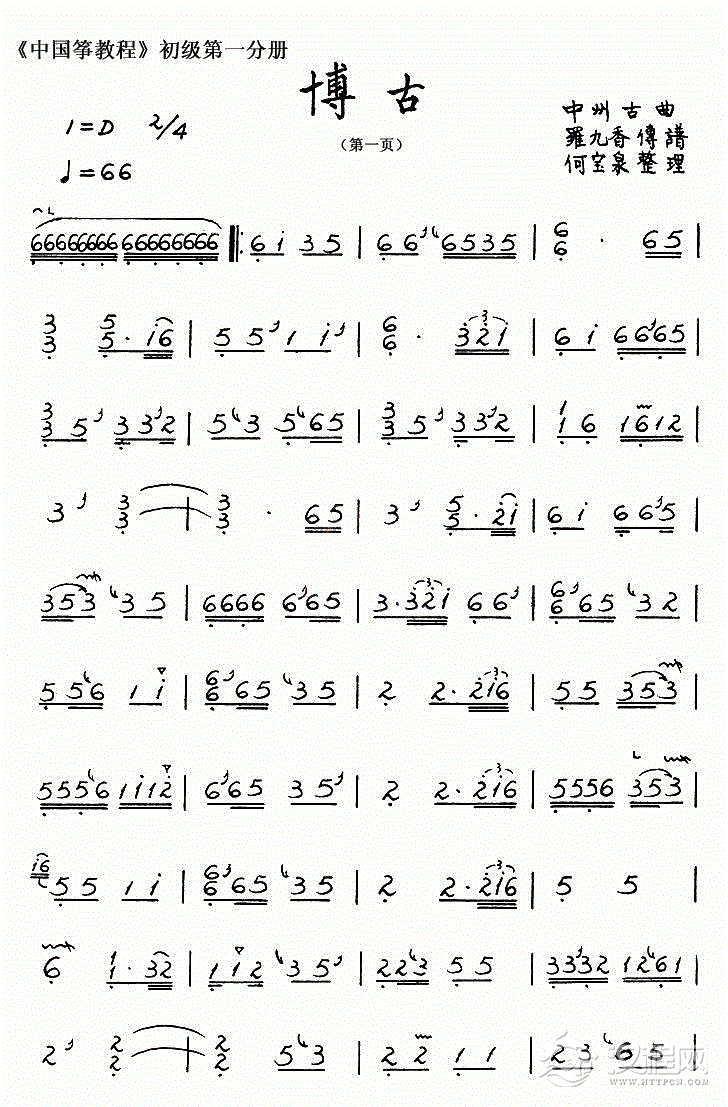 《中国筝教程》初级第一分册
博古
中州古曲
1=D 2/4
（第一页）
羅九香傳譜
♩=66
何宝泉整理
66666666 66666666 6 i 3 5 6 6 6535 6 6 · 65
3 3 5 5 · i6 5 5 1 i 6 6 · 321 6 i 6665
3 3 5 3 3 2 5 3 5 65 3 3 5 3 3 2 1 1 6 1612
3 3 3 3 3 · 65 3 5 5 · 2i 6 i 6 65
353 3 5 6666 6 65 3 · 321 6 6 6 6 65 3 2
5 56 1 i 6 6 65 3 5 2 2 · 216 5 5 353
5556 1112 6 65 3 5 2 2 · 216 5556 353
i6 5 5 1 i 6 6 65 3 5 2 2 · 216 5 5
6 1 · 32 1 12 3 5 223 5 5 3332 1261
2 2 2 2 2 · 5 3 2 2 1 1 2 3 6 5
汉程网
WWW.HTTPCN.COM